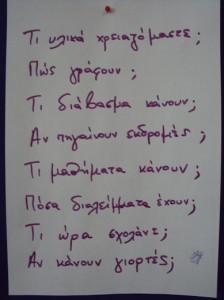 Τι υλικά χρειαζόμαστε;
Πώς γράφουν;
Τι διάβασμα κάνουν;
Αν πηγαίνουν εκδρομές;
Τι μαθήματα κάνουν;
Πόσα διαλείμματα έχουν;
Τι ώρα σχολάνε;
Αν κάνουν γιορτές;